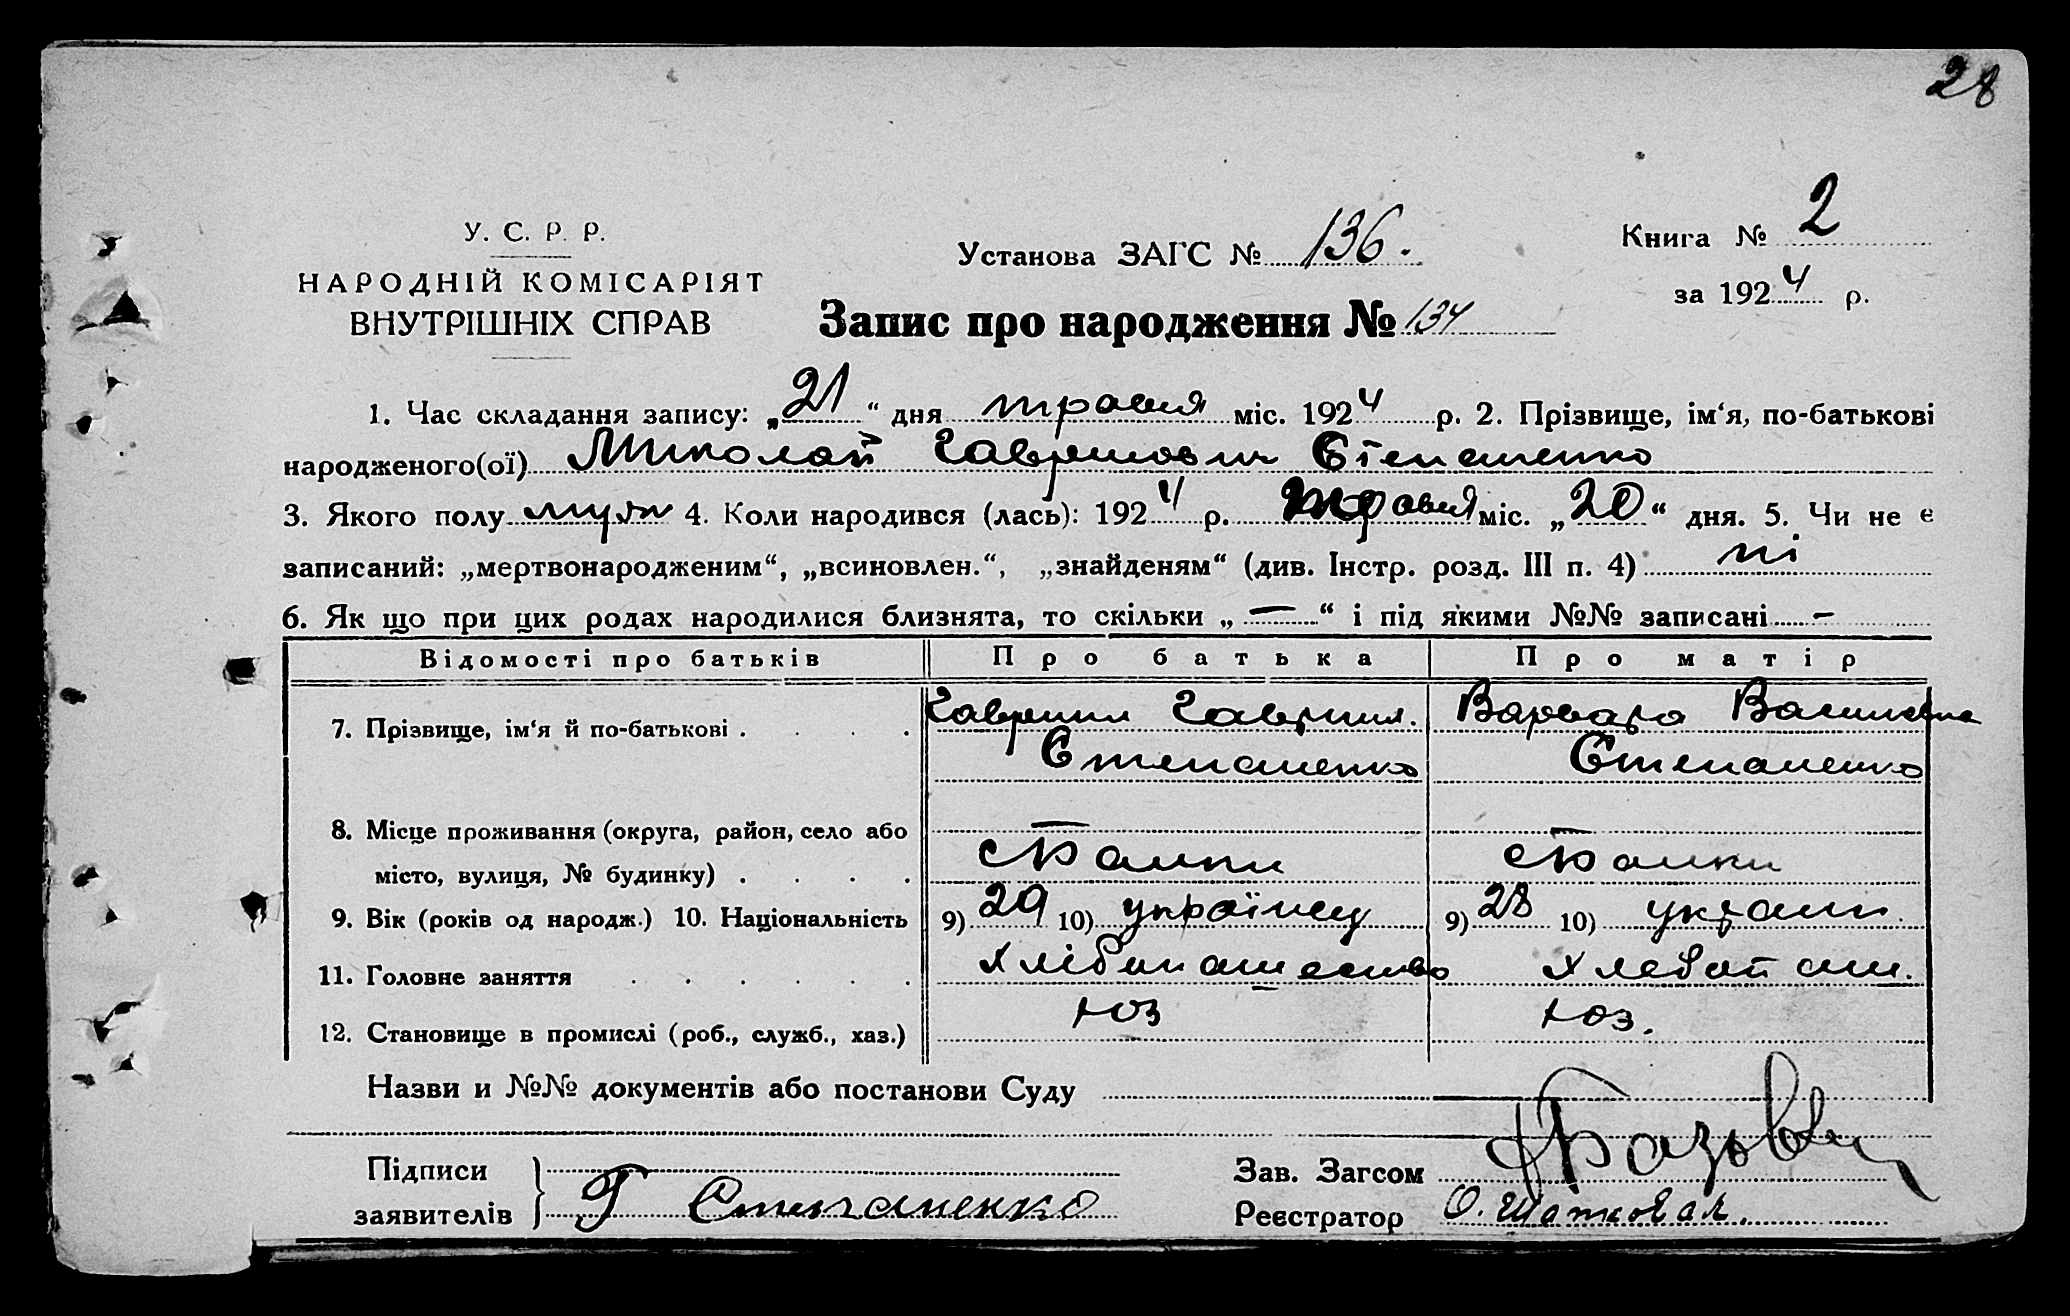 28
У. С. Р. Р.
НАРОДНІЙ КОМІСАРІЯТ
ВНУТРІШНІХ СПРАВ
Установа ЗАГС № 136.
Книга № 2
за 1924 р.
Запис про народження № 134
1. Час складання запису: „21“ дня травня міс. 1924 р. 2. Прізвище, ім‘я, по-батькові
народженого(ої) Миколай Гаврилович Степаненко
3. Якого полу муж 4. Коли народився (лась): 1924 р. травня міс. „20“ дня. 5. Чи не є
записаний: „мертвонародженим“, „всиновлен.“, „знайденям“ (див. Інстр. розд. III п. 4) ні
6. Як що при цих родах народилися близнята, то скільки „—“ і під якими №№ записані —
Відомості про батьків Про батька Про матір
7. Прізвище, ім‘я й по-батькові . . . . Гаврило Гаврил. Варвара Василівна
Степаненко Степаненко
8. Місце проживання (округа, район, село або — —
місто, вулиця, № будинку) . . . .
9. Вік (років од народж.) 10. Національність 9) 29 10) українец 9) 28 10) украин.
11. Головне заняття . . . . . . хлібопашество хлебопаш.
12. Становище в промислі (роб., служб., хаз.) хоз хоз.
Назви и №№ документів або постанови Суду
Підписи
заявителів Г Степаненко
Зав. Загсом
Реєстратор О.